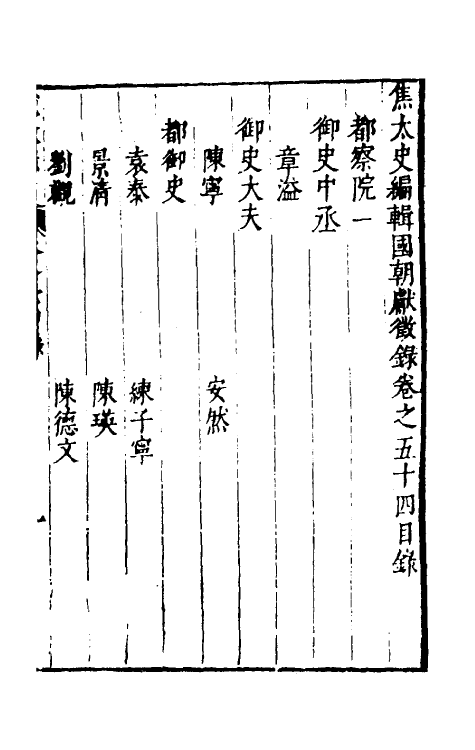 焦太史編輯國朝獻徵錄卷之五十四目錄
都察院一
御史中丞
章溢
御史大夫
陳寧 安然
都御史
袁泰 練子寧
景清 陳瑛
劉觀 陳德文
一